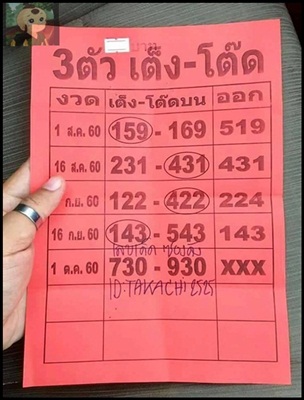 3ตัว เต็ง-โต๊ด
งวด เต็ง-โต๊ดบน ออก
1 ส.ค. 60 159 - 169 519
16 ส.ค. 60 231 - 431 431
ก.ย. 60 122 - 422 224
16 ก.ย. 60 143 - 543 143
1 ต.ค. 60 730 - 930 XXX
ID:TAKACHI 2525